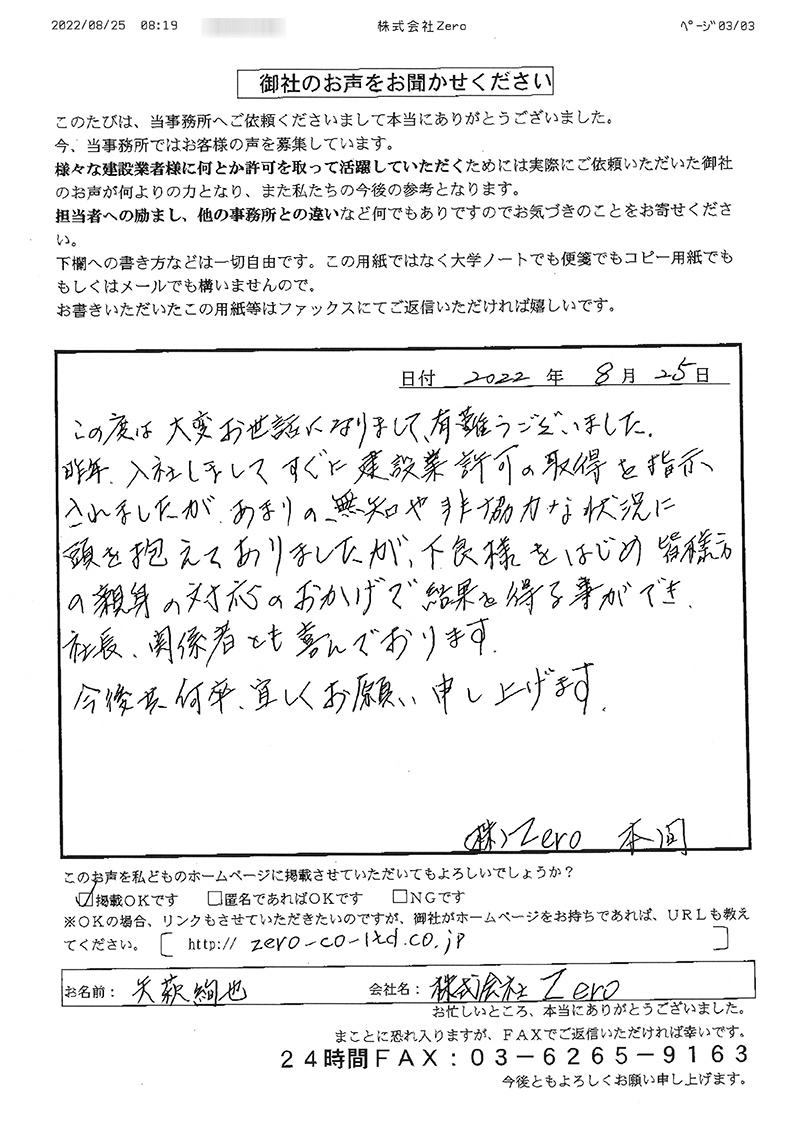 2022/08/25 08:19 株式会社Zero ﾍﾟｰｼﾞ 03/03
御社のお声をお聞かせください
このたびは、当事務所へご依頼くださいまして本当にありがとうございました。
今、当事務所ではお客様の声を募集しています。
様々な建設業者様に何とか許可を取って活躍していただくためには実際にご依頼いただいた御社
のお声が何よりの力となり、また私たちの今後の参考となります。
担当者への励まし、他の事務所との違いなど何でもありですのでお気づきのことをお寄せくださ
い。
下欄への書き方などは一切自由です。この用紙ではなく大学ノートでも便箋でもコピー用紙でも
もしくはメールでも構いませんので。
お書きいただいたこの用紙等はファックスにてご返信いただければ嬉しいです。
日付 2022 年 8 月 25 日
この度は大変お世話になりまして、有難うございました。
昨年、入社しましてすぐに建設業許可の取得を指示
されましたが、あまりの無知や非協力な状況に
頭を抱えておりましたが、下良様をはじめ皆様方
の親身の対応のおかげで結果を得る事ができ、
社長、関係者とも喜んでおります。
今後共、何卒、宜しくお願い申し上げます。
(株)Zero 本間
このお声を私どものホームページに掲載させていただいてもよろしいでしょうか？
☑掲載OKです □匿名であればOKです □NGです
※OKの場合、リンクもさせていただきたいのですが、御社がホームページをお持ちであれば、URLも教え
てください。 [ http:// zero-co-ltd.co.jp ]
お名前： 矢萩絢也 会社名： 株式会社Zero
お忙しいところ、本当にありがとうございました。
まことに恐れ入りますが、FAXでご返信いただければ幸いです。
24時間FAX：03－6265－9163
今後ともよろしくお願い申し上げます。